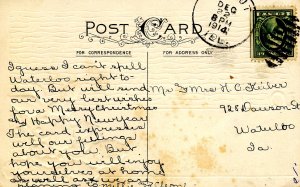 POST CARD
FOR CORRESPONDENCE
FOR ADDRESS ONLY
DEC
22
8 PM
1914
ILL.
I guess I can't spell
Waterloo right to-
day. But will send
our very best wishes
for a Merry Christmas
& Happy New year
The card expresses
well our feelings
about you. But
hope you will enjoy
yourselves at home
as well as we can
Mr & Mrs H C
928 Dawson St
Waterloo
Ia.